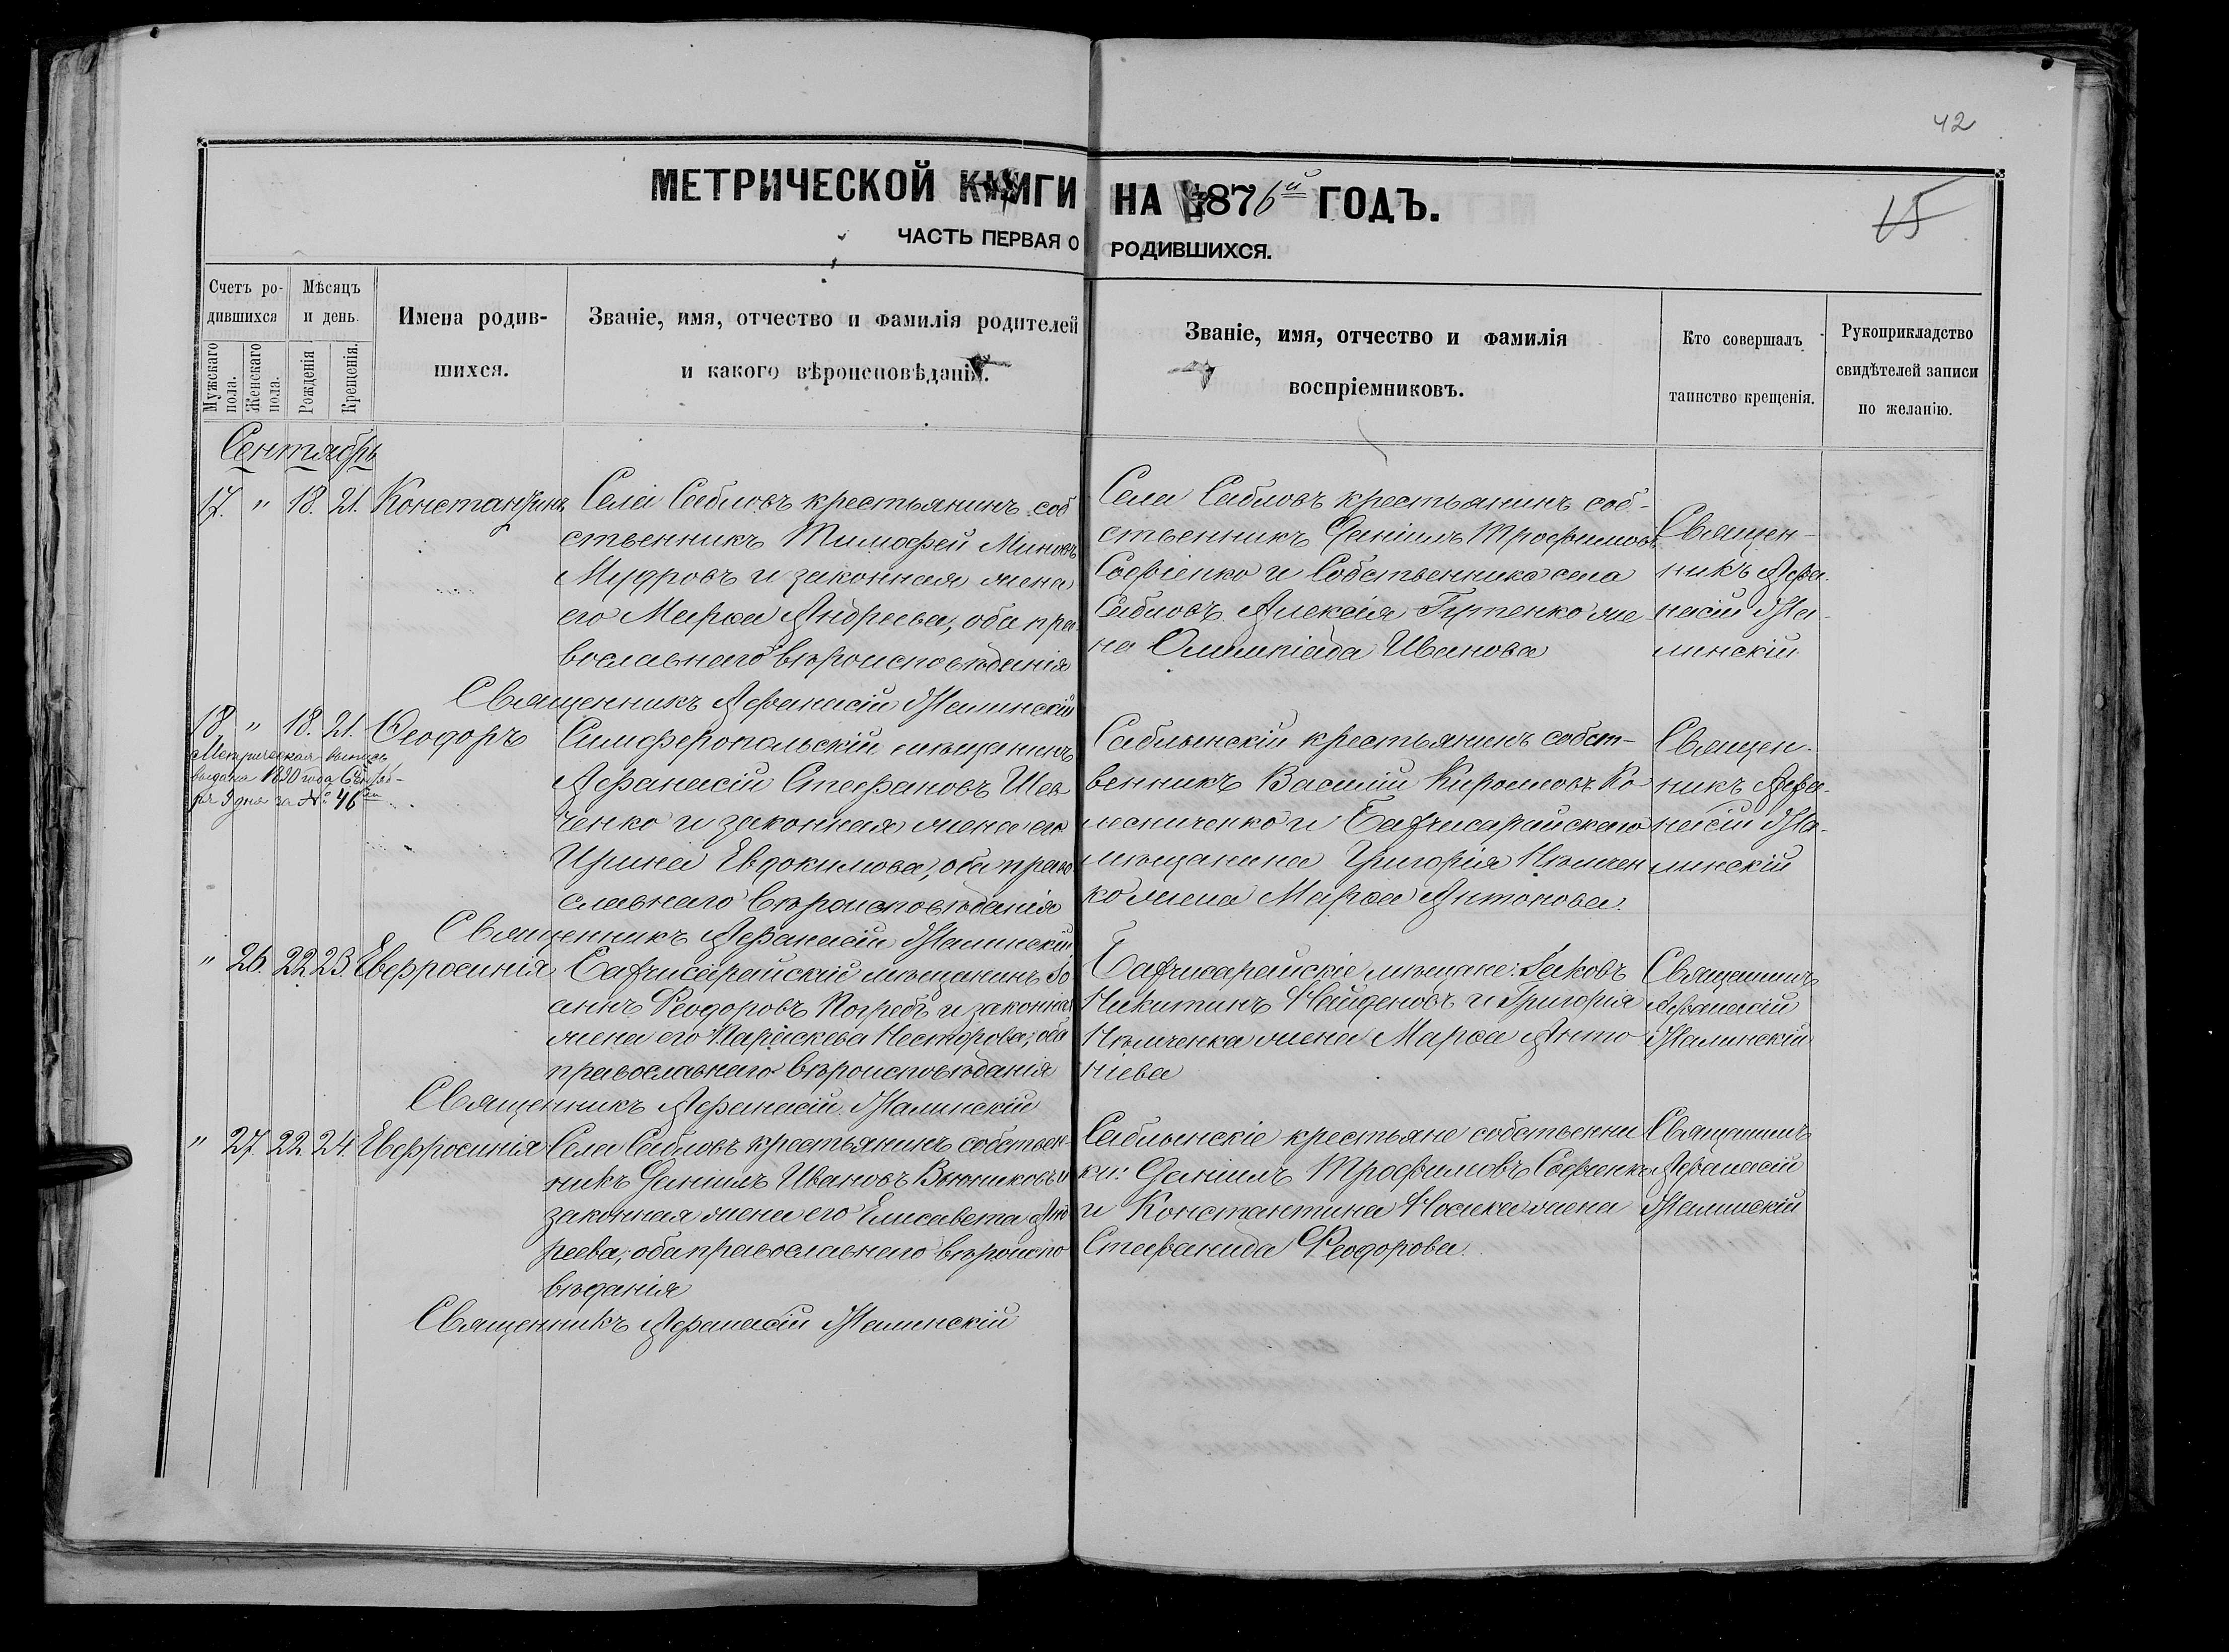 42
МЕТРИЧЕСКОЙ КНИГИ НА 1876й ГОДЪ.
15
ЧАСТЬ ПЕРВАЯ О РОДИВШИХСЯ.
Счетъ ро-
дившихся
Мужскаго пола.
Женскаго пола.
Мѣсяцъ
и день.
Рожденія
Крещенія.
Имена родив-
шихся.
Званіе, имя, отчество и фамилія родителей
и какого вѣроисповѣданія.
Званіе, имя, отчество и фамилія
воспріемниковъ.
Кто совершалъ
таинство крещенія.
Рукоприкладство
свидѣтелей записи
по желанію.
Сентябрь
17. " 18. 21. Константинъ
Села Сабловъ крестьянинъ соб
ственникъ Тимофей Миновъ
Мудровъ и законная жена
его Марѳа Андреева, оба пра-
вославнаго вѣроисповѣданія
Села Сабловъ крестьянинъ соб-
ственникъ Даніилъ Трофимовъ
Софіенко и Собственника села
Сабловъ Алексія же-
на Олимпіада Иванова
Священ-
никъ Аѳа-
насій
Священникъ Аѳанасій
18. " 18. 21. Ѳеодоръ
Метрическая выпись
выдана 1890 года Сентяб-
ря 9 дня за № 46м
Симферопольскій мѣщанинъ
Аѳанасій Стефановъ Шев
ченко и законная жена его
Ирина Евдокимова, оба право
славнаго вѣроисповѣданія
Саблынскій крестьянинъ собст-
венникъ Василій Кирилловъ Ко
лесниченко и Бахчисарайскаго
мѣщанина Григорія Нѣмчен
ко жена Марѳа Антонова.
Священ-
никъ Аѳа-
насій
Священникъ Аѳанасій
" 26. 22 23. Евфросинія
Бахчисарайскій мѣщанинъ Іо
аннъ Ѳеодоровъ Погребъ и законная
жена его Параскева Несторова; оба
православнаго вѣроисповѣданія
Бахчисарайскіе мѣщане: Іаковъ
Никитинъ Найденовъ и Григорія
Нѣмченка жена Марѳа Анто
ніева
Священникъ
Аѳанасій
Священникъ Аѳанасій
" 27. 22. 24. Евфросинія
Села Сабловъ крестьянинъ собствен-
никъ Даніилъ Ивановъ Вьюниковъ и
законная жена его Елисавета Анд
реева; оба православнаго вѣроиспо
вѣданія
Саблынскіе крестьяне собственни
ки: Даніилъ Трофимовъ Софіенко
и Константина Носика жена
Стефанида Ѳеодорова.
Священникъ
Аѳанасій
Священникъ Аѳанасій